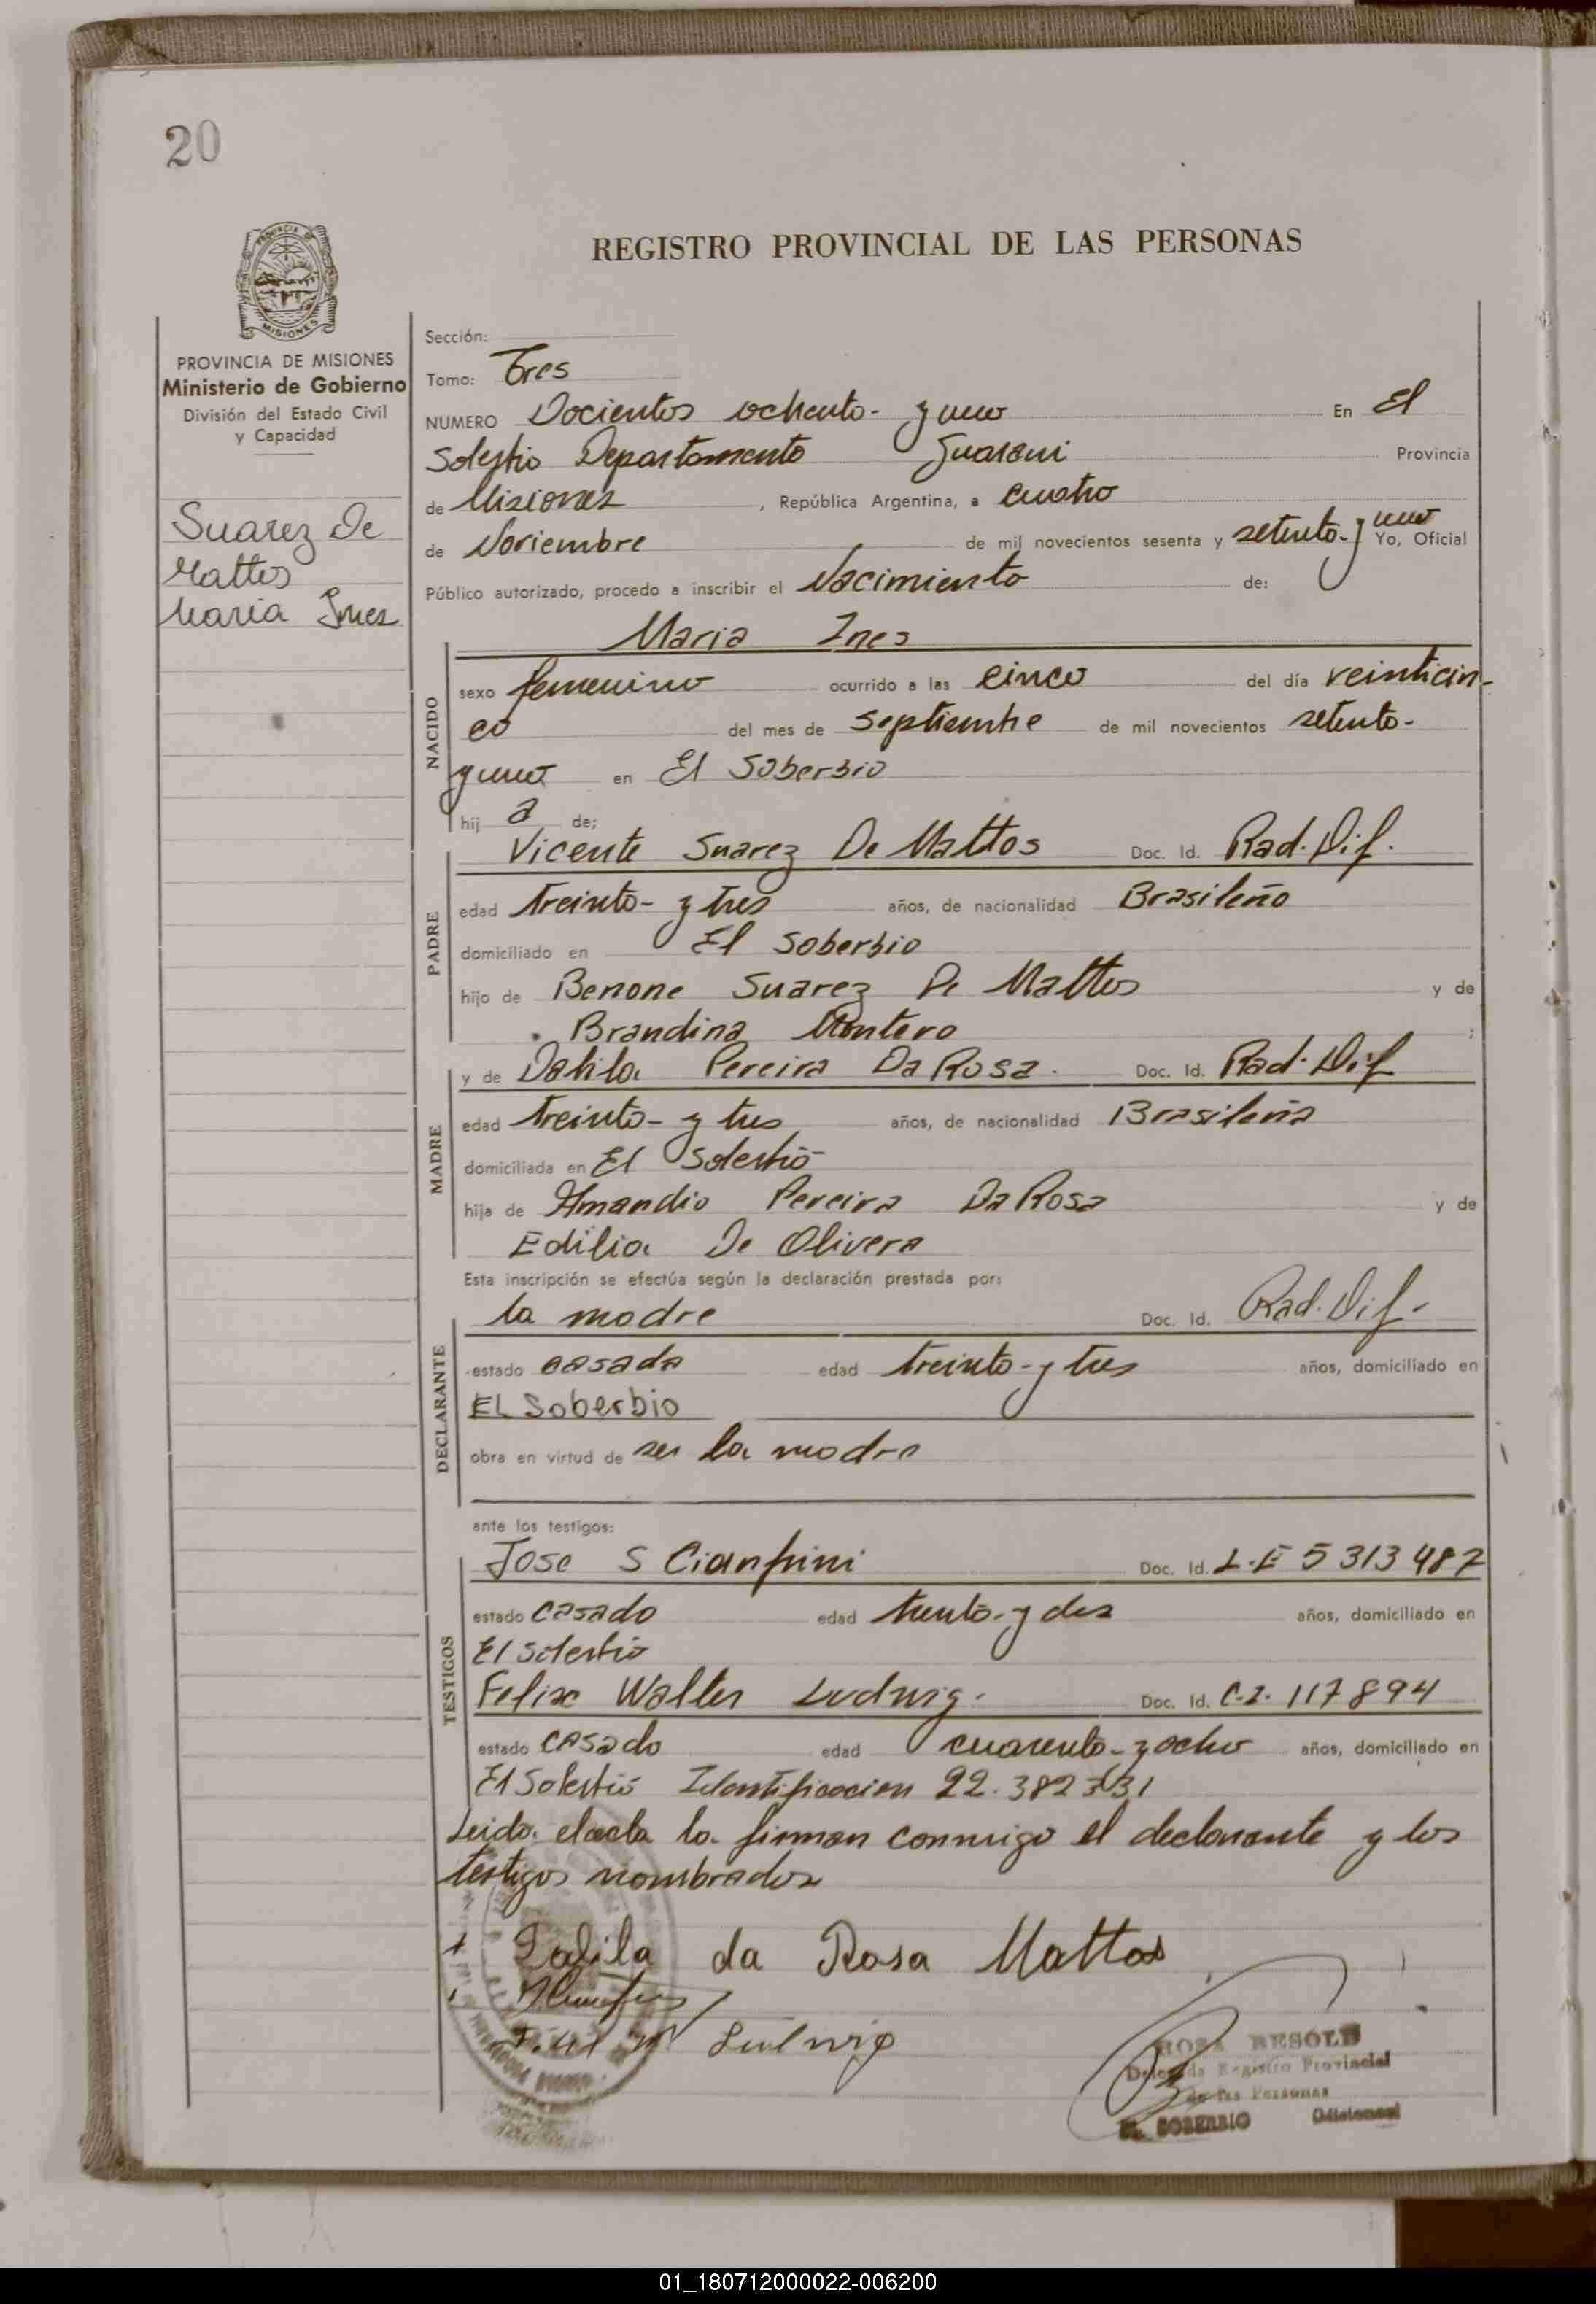 20
PROVINCIA DE MISIONES
REGISTRO PROVINCIAL DE LAS PERSONAS
PROVINCIA DE MISIONES
Ministerio de Gobierno
División del Estado Civil
y Capacidad
Suarez De
Mattos
Maria Ines
Sección:
Tomo: Tres
NUMERO Docientos ochenta y uno En El
Soberbio Departamento Guarani Provincia
de Misiones, República Argentina, a cuatro
de Noviembre de mil novecientos sesenta y setenta y uno Yo, Oficial
Público autorizado, procedo a inscribir el Nacimiento de:
Maria Ines
NACIDO
sexo femenino ocurrido a las cinco del día veinticin-
co del mes de Septiembre de mil novecientos setenta-
y uno en El Soberbio
hij a de;
PADRE
Vicente Suarez De Mattos Doc. Id. Rad. Dif.
edad treinta- y tres años, de nacionalidad Brasileño
domiciliado en El Soberbio
hijo de Benone Suarez De Mattos y de
Brandina Montero ;
MADRE
y de Dalila Pereira Da Rosa. Doc. Id. Rad. Dif
edad treinta- y tres años, de nacionalidad Brasileña
domiciliada en El Soberbio
hija de Amandio Pereira Da Rosa y de
Edilia De Olivera
Esta inscripción se efectúa según la declaración prestada por:
DECLARANTE
la madre Doc. Id. Rad. Dif.
estado casada edad treinta- y tres años, domiciliado en
EL Soberbio
obra en virtud de ser la madre
ante los testigos:
TESTIGOS
Jose S Cianfrini Doc. Id. L.E 5313487
estado casado edad treinta- y dos años, domiciliado en
El Soberbio
Felix Walter Ludwig. Doc. Id. C.I. 117894
estado casado edad cuarenta- y ocho años, domiciliado en
El Soberbio Identificacion 22.382
Leida el acta la firman conmigo el declarante y los
testigos nombrados
Dalila da Rosa Mattos
Ludwig
ROSA BESOLD
Delegada Registro Provincial
de las Personas
EL SOBERBIO (Misiones)
01_180712000022-006200